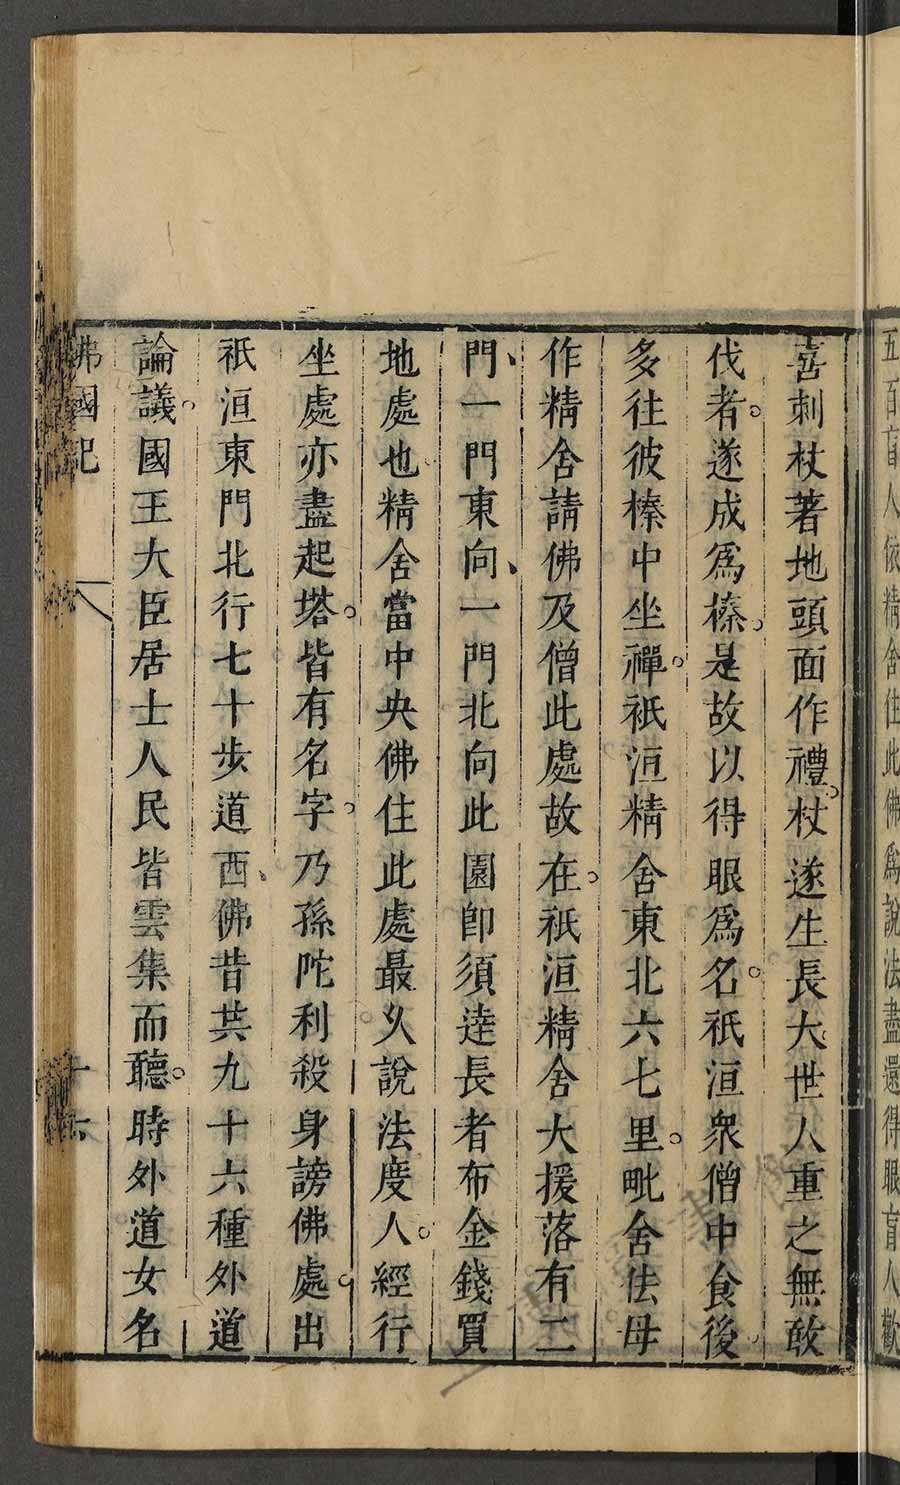 五百盲人依精舍住此佛爲說法盡還得眼盲人歡
喜刺杖著地頭面作禮。杖遂生長大。世人重之無敢
伐者。遂成爲榛。是故以得眼爲名。祇洹衆僧中食後
多往彼榛中坐禪。祇洹精舍東北六七里。毗舍佉母
作精舍請佛及僧此處故在。祇洹精舍大援落有二
門、一門東向、一門北向此園卽須達長者布金錢買
地處也。精舍當中央佛住此處最久。說法度人。經行
坐處亦盡起塔。皆有名字。乃孫陀利殺身謗佛處。出
祇洹東門北行七十步道西、佛昔共九十六種外道
論議。國王大臣居士人民皆雲集而聽。時外道女名
佛國記
十六